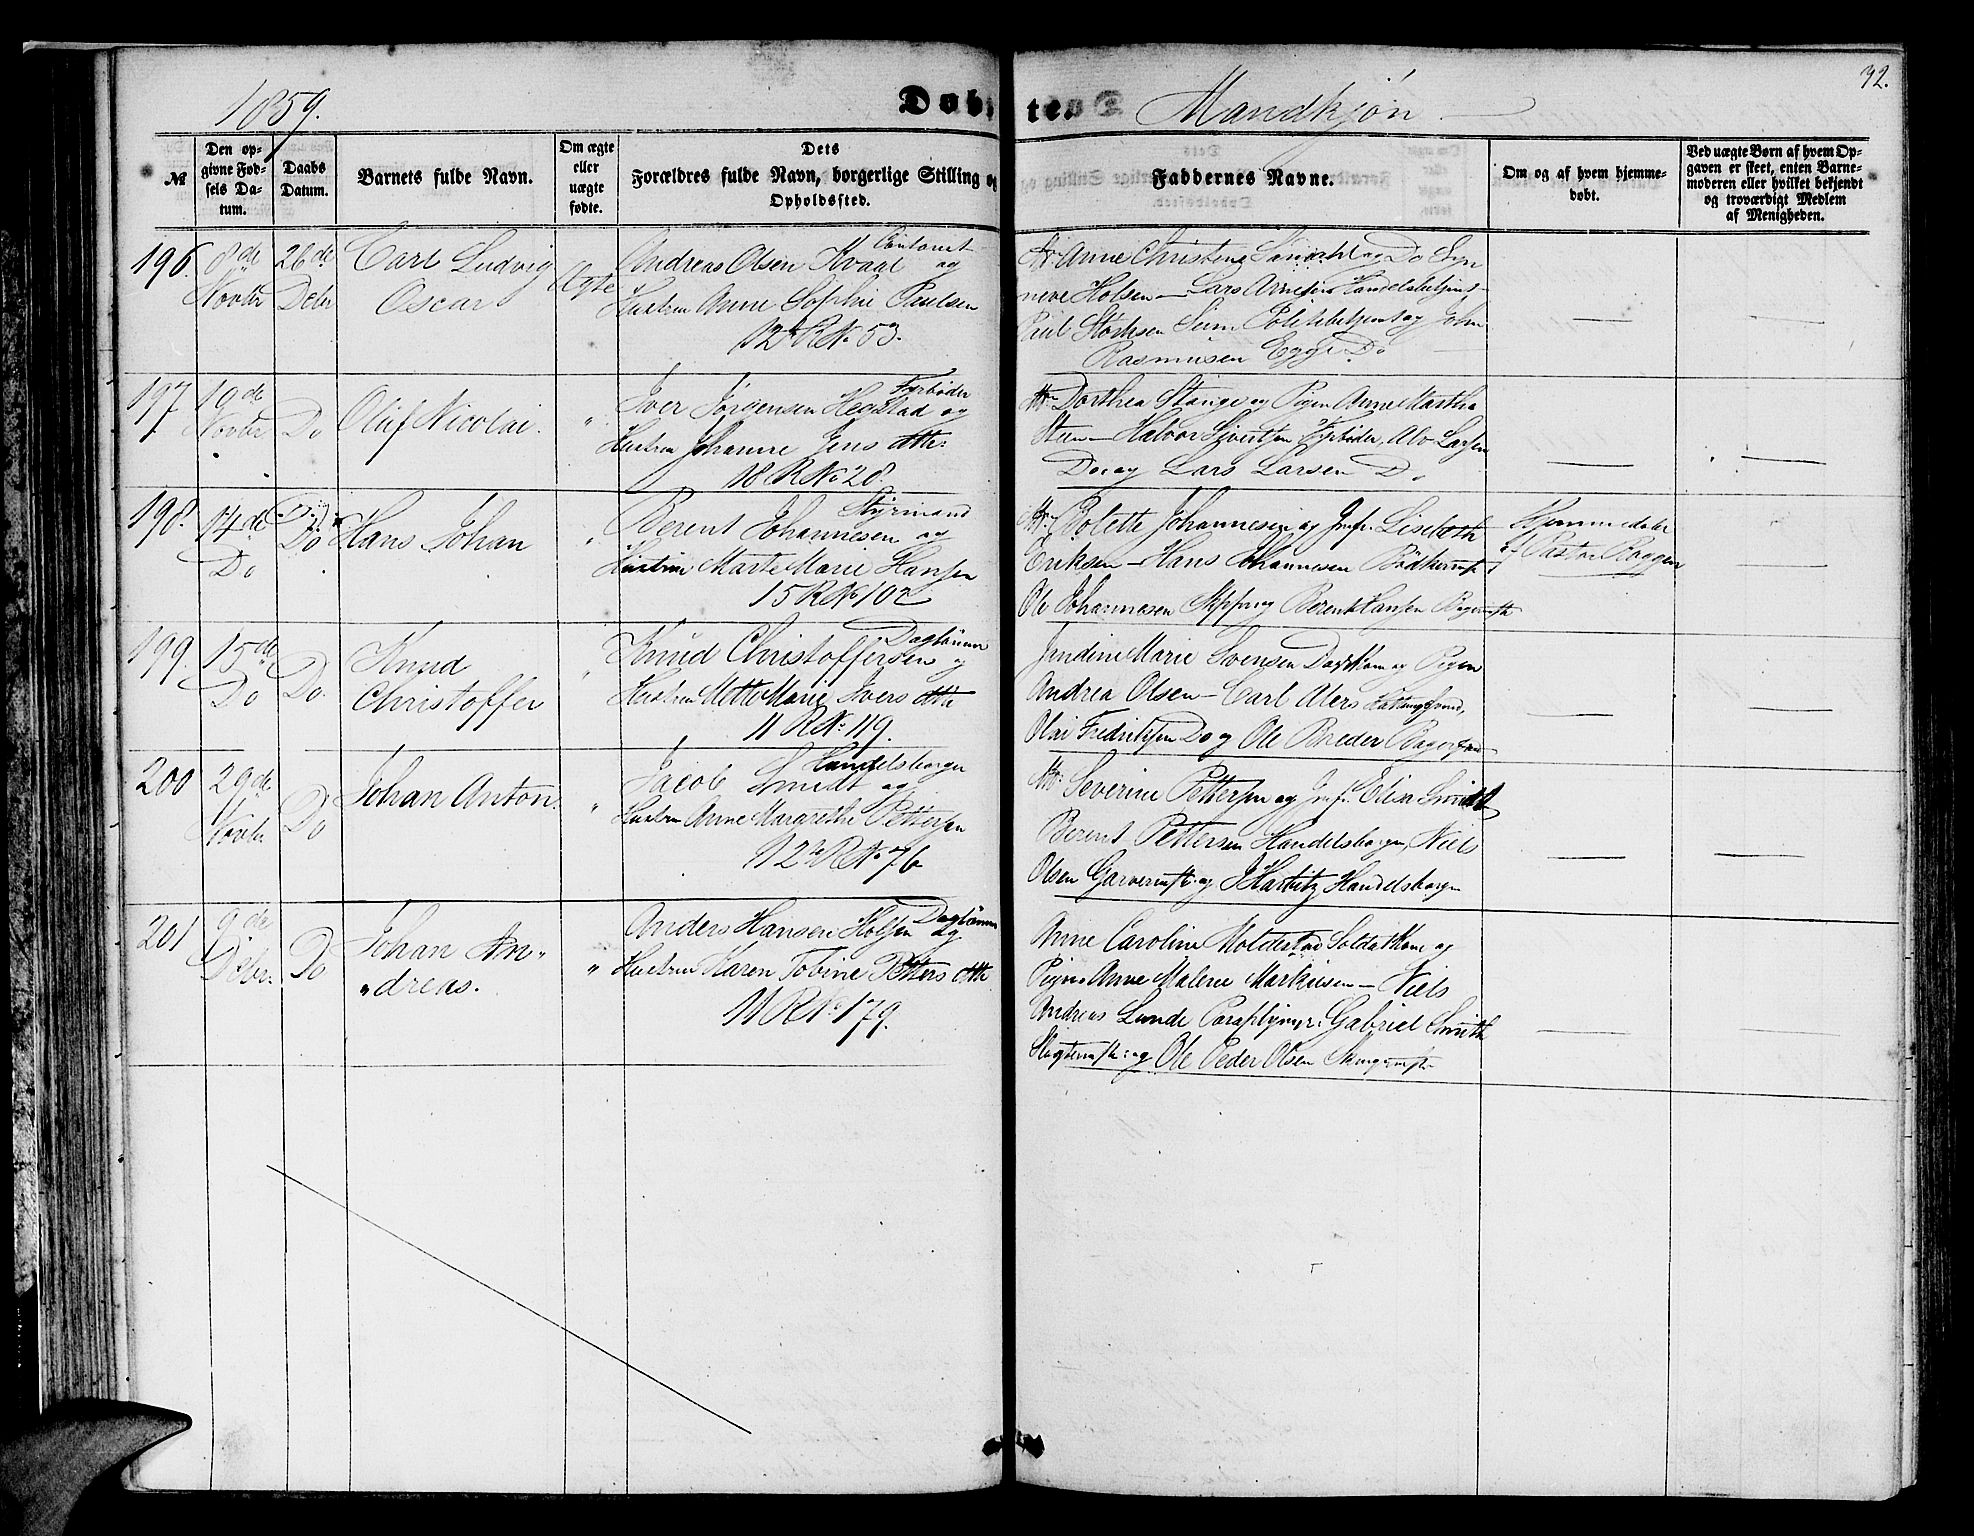 1859.
Døbte. Mandkjøn
32.
№
Den opgivne Fødsels Datum.
Daabs Datum.
Barnets fulde Navn.
Om ægte eller uægte fødte.
Dets Forældres fulde Navn, borgerlige Stilling og Opholdssted.
Faddernes Navne.
Om og af hvem hjemmedøbt.
Ved uægte Børn af hvem Opgaven er skeet, enten Barnemoderen eller hvilket bekjendt og troværdigt Medlem af Menigheden.
196. 8de Novbr 26de Debr Carl Ludvig Oscar Ægte
Andreas Olsen Kvaal og
Hustru Anne Sophie Paulsen
12 R No 53.
Anne Christine og Do Syn
neve Holsen — Lars Handelsbetjent
Paul Seim Politibetjent og John
Rasmusen Egge Do
197 10de Novbr Do Oluf Nicolai. "
Fyrbøder
Iver Jørgensen Hegstad og
Hustru Johanne Jens dtr:
18 R No 28.
Dorthea Stange og Pigen Anne Martha
Steen — Halvor Sjvertsen Fyrbøder, Alv Larsen
Do og Lars Larsen Do
198. 14de Do Do Hans Johan "
Styrmand
Berent Johannesen og
Hustru Marte Marie Hansen
15 R No 102
Bolette Johannesen og Jmfr. Lisebeth
Eriksen — Hans Johannesen Bødkermst
Ole Johannesen Skipper og Berent Hansen Bagermstr
Hjemmedøbt
af Pastor
199. 15de Do Do. Knud Christoffer "
Daglønner
Knud Christoffersen og
Hustru Mette Marie Ivers dtr
11 R No 119.
Jendine Marie Svensen og Pigen
Andrea Olsen — Carl Alers
Olai Fredriksen Do og Ole Breder
200 29de Novbr Do Johan Anton. "
Handelsborger
Jacob Smidt og
Hustru Anne Margrethe Pettersen
12te R No 76
Severine Pettersen og Jmf. Elisa Smidt
Berent Pettersen Handelsborger, Niels
Olsen Garvermstr. og J Harbitz Handelsborger
201 9de Debr. Do Johan An"
"dreas. "
Daglønner
Anders Hansen Holsen og
Hustru Karen Tobine Petters dtr
11 R No 179.
Anne Caroline Moldestad Soldat Kone og
Pigen Anne Malene Markusen — Niels
Andreas Lunde Gabriel Smith
Slagtermstr: og Ole Peder Olsen